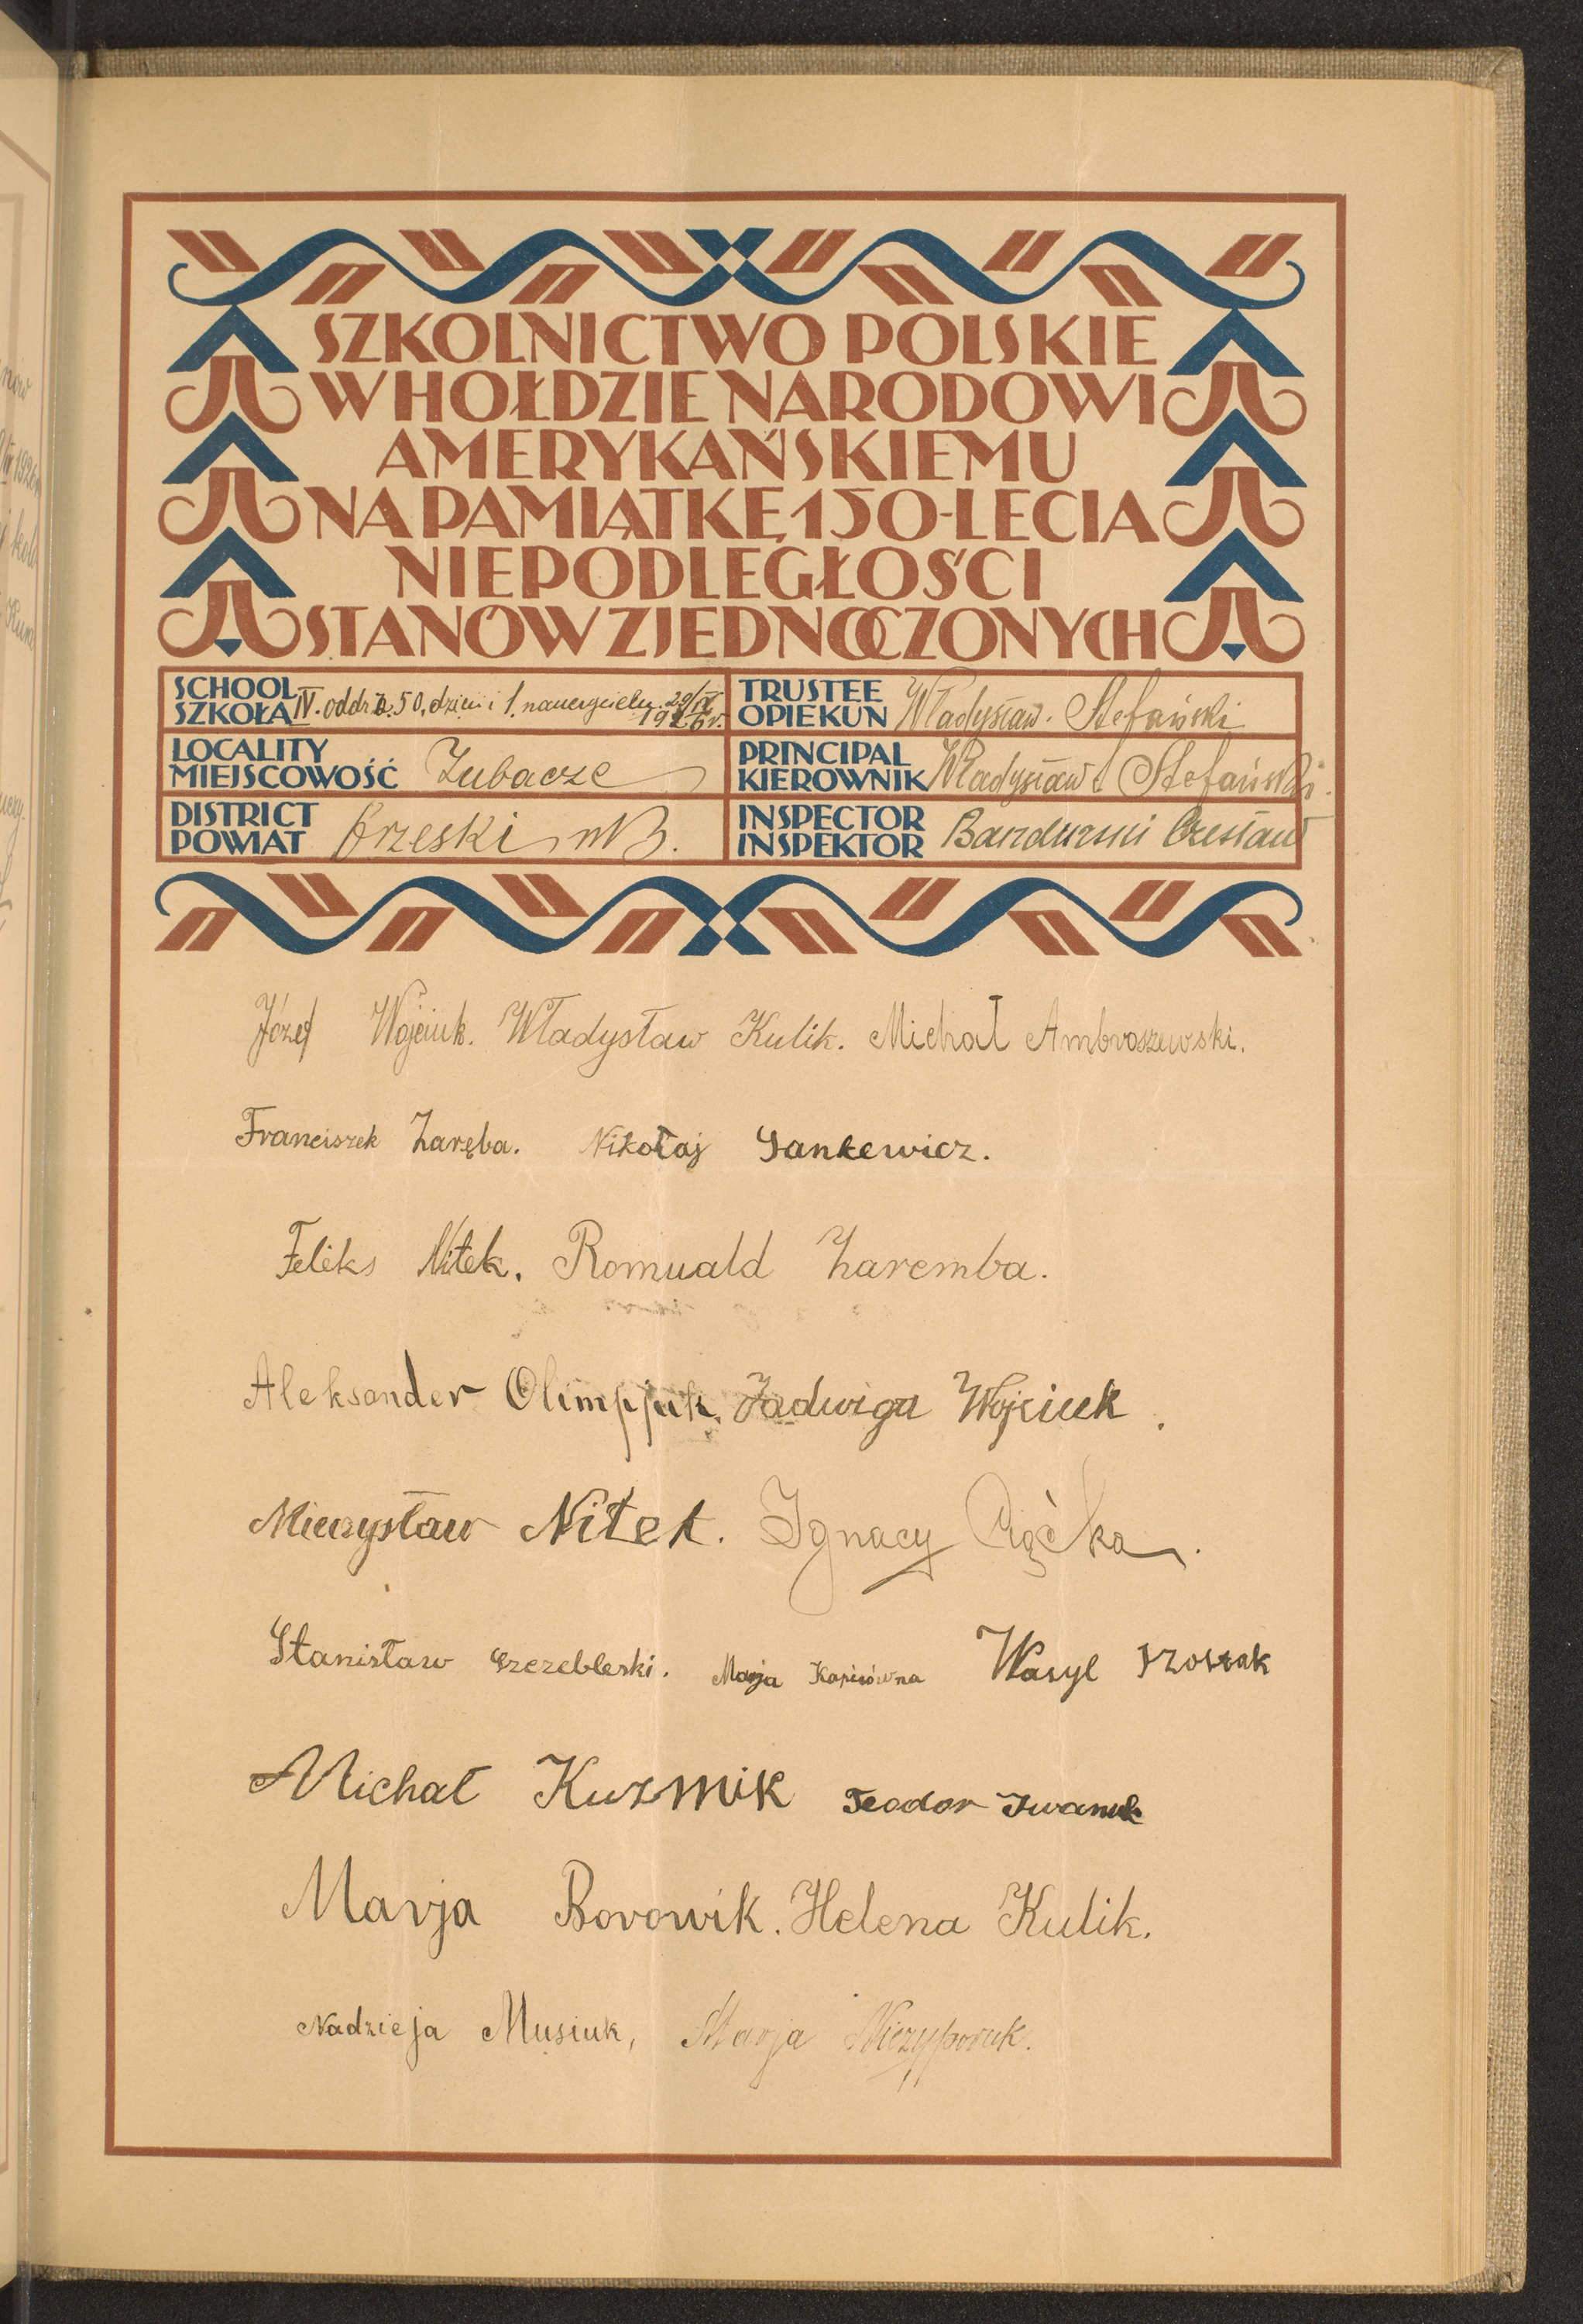 SZKOLNICTWO POLSKIE
W HOŁDZIE NARODOWI
AMERYKAŃSKIEMU
NA PAMIĄTKĘ 150-LECIA
NIEPODLEGŁOŚCI
STANÓW ZJEDNOCZONYCH
SCHOOL
SZKOŁA
IV. oddz. 50. dzieci i 1. nauczyciela. 29/IX
1926 r.
LOCALITY
MIEJSCOWOŚĆ
Zubacze
DISTRICT
POWIAT
Brzeski n/B.
TRUSTEE
OPIEKUN
Władysław. Stefański
PRINCIPAL
KIEROWNIK
Władysław Stefański.
INSPECTOR
INSPEKTOR
Bandurski Czesław
Józef Wojciuk. Władysław Kulik. Michał Ambroszewski.
Franciszek Zaręba. Nikołaj Sankewicz.
Feliks Nitek. Romuald Zaremba.
Aleksander Olimpjuk. Jadwiga Wojciuk.
Mieczysław Nitek. Ignacy
Stanisław Szczebleski. Marja Kapisówna Wasyl
Michał Kuzmik Teodor Iwaniuk
Marja Borowik. Helena Kulik.
Nadzieja Musiuk, Marja Niczyporuk.